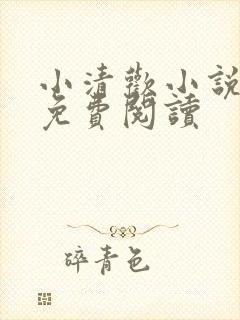 小清歡小說
免費閱讀
碎青色